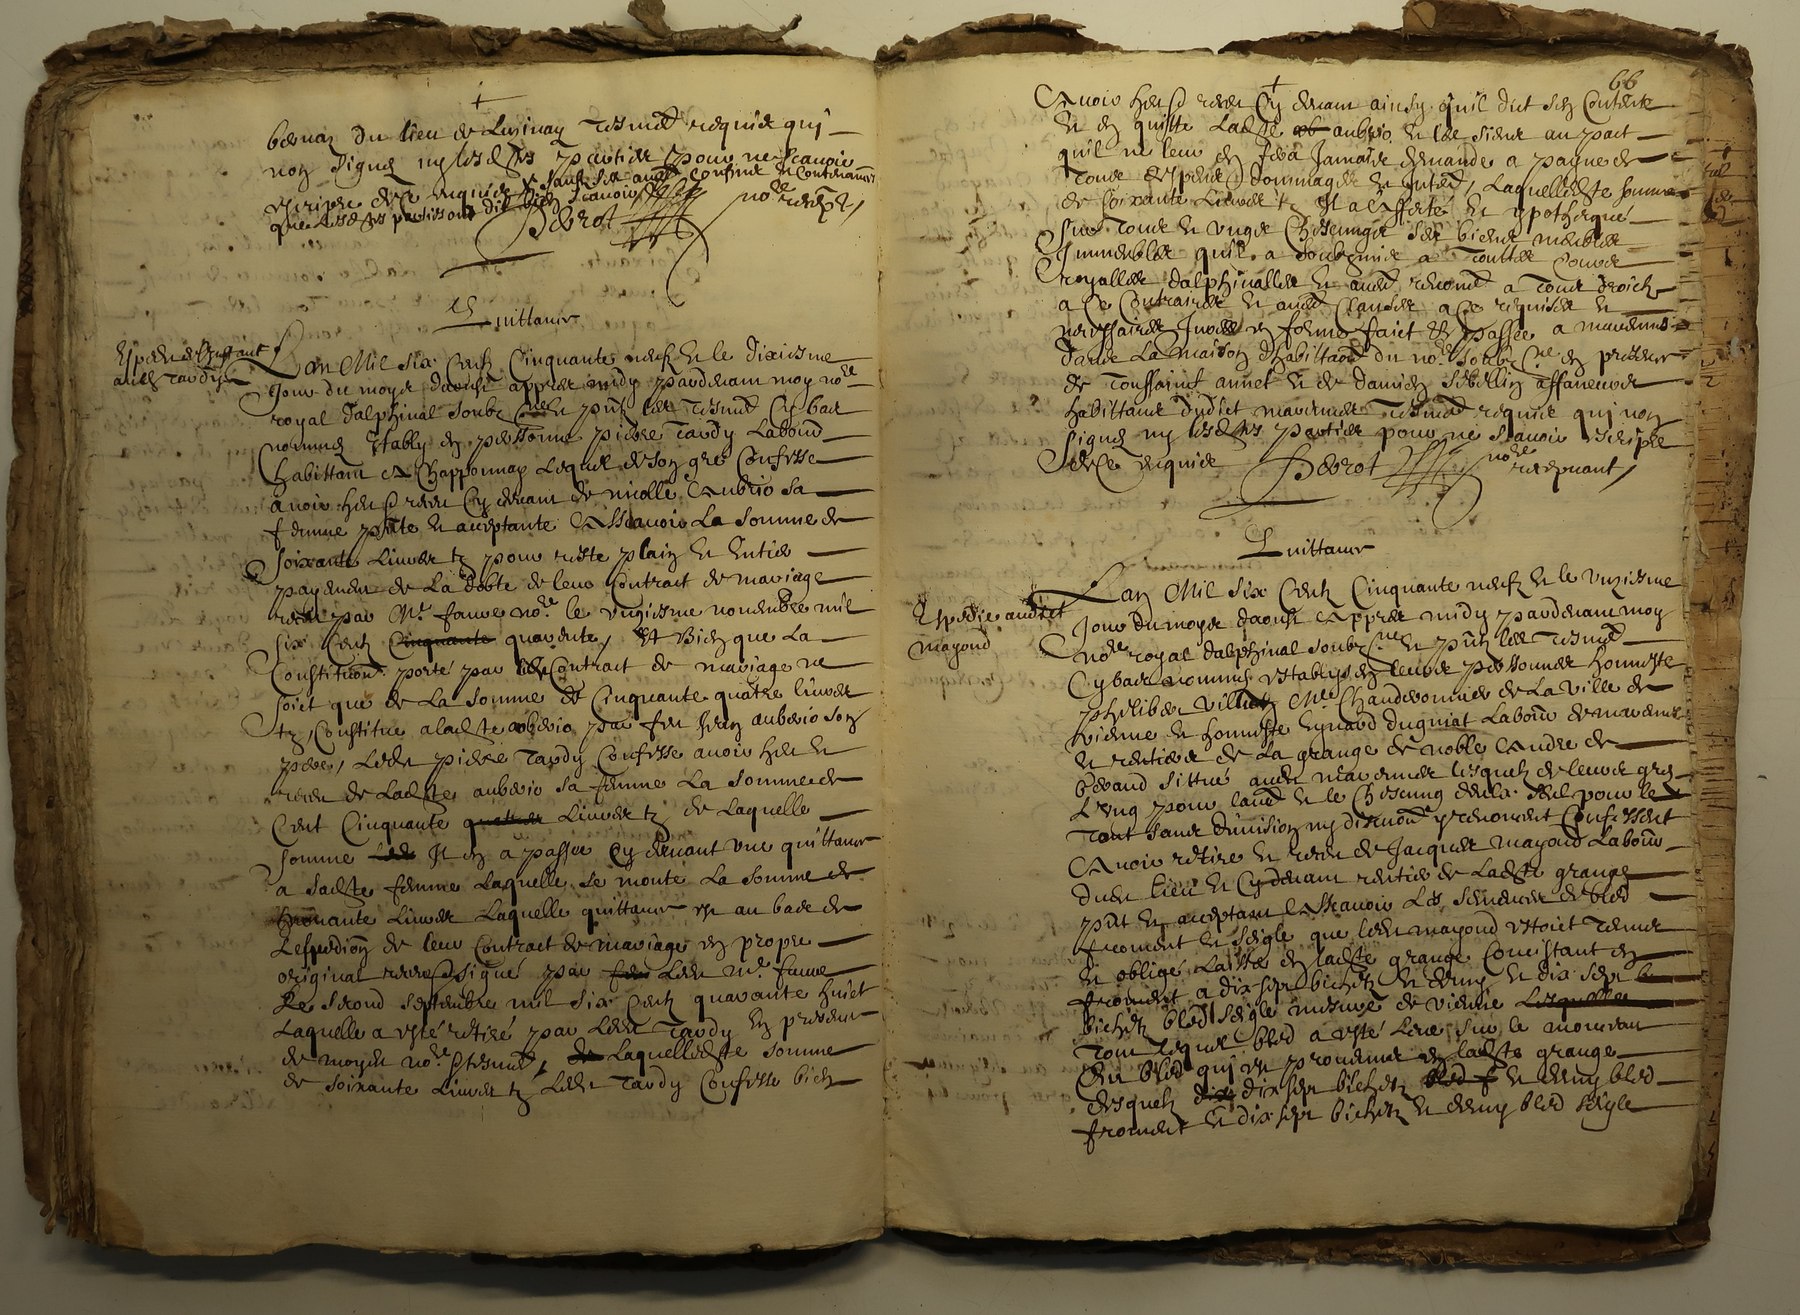 du lieu de Luzinay requis qui
non signé ny lesd parties pour ne scavoir
escripre de ce enquis
Bevrot nore recepv
Quittance
Expedié
audit Tardy
Lan Mil six Centz Cinquante neufz et le dixiesme
Jour du moys daoust appres midy pardevant moy nore
royal dalphinal soubzne et pntz les tesmoingz cy bas
nommes estably en personne pierre Tardy Labour
habittant a Chapponnay Lequel de son gre Confesse
avoir heu et receu cy devant de nicolle aubrio sa
femme pnte et acceptante Assavoir La somme de
soixante Livres tz pour reste plain et entier
payement de La debte de leur Contract de mariage
receu par Me favre nore le vngiesme novembre mil
six Centz Cinquante quarente, Et Bien que La
Constitution porté par led Contract de mariage ne
soict que de La somme de Cinquante quatre livres
tz Constitue a ladte aubrio par feu aubrio son
pere, Ledt pierre Tardy Confesse avoir heu et
receu de Ladte aubrio sa femme La somme de
Cent Cinquante Livres tz de Laquelle
somme Il en a passer cy devant vne quittance
a sadte femme Laquelle se monte La somme de
Livres Laquelle quittance est au bas de
Lexpedition de leur Contract de mariage en propre
original signé par Ledt Me favre
Le second septembre mil six Centz quarante huict
Laquelle a esté retiré par Ledt Tardy en presence
de moydt nore et tesmoingz, Laquelle dte somme
de soixante Livres tz Ledt Tardy Confesse bien
66
Avoir heu et receu cy devant ainsy quil dict sen Contente
et en quitte Ladte aubrio et les siens au pact
quil ne leur en sera Jamais demandé a payne de
tous despens dommages et interestz, Laquelle dte somme
de soixante Livres tz Il a affecté et ypothequé
sur tous et vngs Chescungs ses biens meubles
Immeubles quil a soubzmis a touttes Cours
royalles dalphinalles et aues renonce a tous droictz
a ce Contraires et aues Clauses a ce requises et
necessaires Jurees en forme faict et passee a marennes
dans La maison dhabittaon du nore soubzne en presence
de Toussainct annet et de damien Sibellin affaneurs
habittans dudict marennes tesmoingz requis qui non
signé ny lesd parties pour ne scavoir escripre
de ce enquis Bevrot nore recepvant
Quittance
Expedie audict
mayoud
Lan Mil six Centz Cinquante neufz et le vnziesme
Jour du moys daoust appres midy pardevant moy
nore royal dalphinal soubzne et pntz les tesmoingz
cy bas nommes establys en leurs personnes honneste
philibert Me Chauderonnier de La ville de
vienne et honneste eynard dugniat Labour de marennes
et rentiers de La grange de noble andre de
bevand sittué audt marennes lesquelz de leurs grez
L'vng pour laues et le Chescung deulx seul pour le
tout sans division ny discution y renoncent Confessent
Avoir retire et receu de Jacques mayoud Labour
dudt lieu et cy devant rentier de Ladte grange
pnt et acceptant Assavoir Les semences de bled
froment et seigle que ledt mayoud estoit tenus
et obligé Laisser en ladte grange Consistant en
froment a dix sept bichetz et demy et dix sept
bichetz bled seigle mesure de vienne Lesquelles
tout Lequel bled a esté Leve sur le monceau
du bled qui est provenus en ladte grange
desquelz dix sept bichetz et demy bled
froment et dix sept bichetz et demy bled seigle